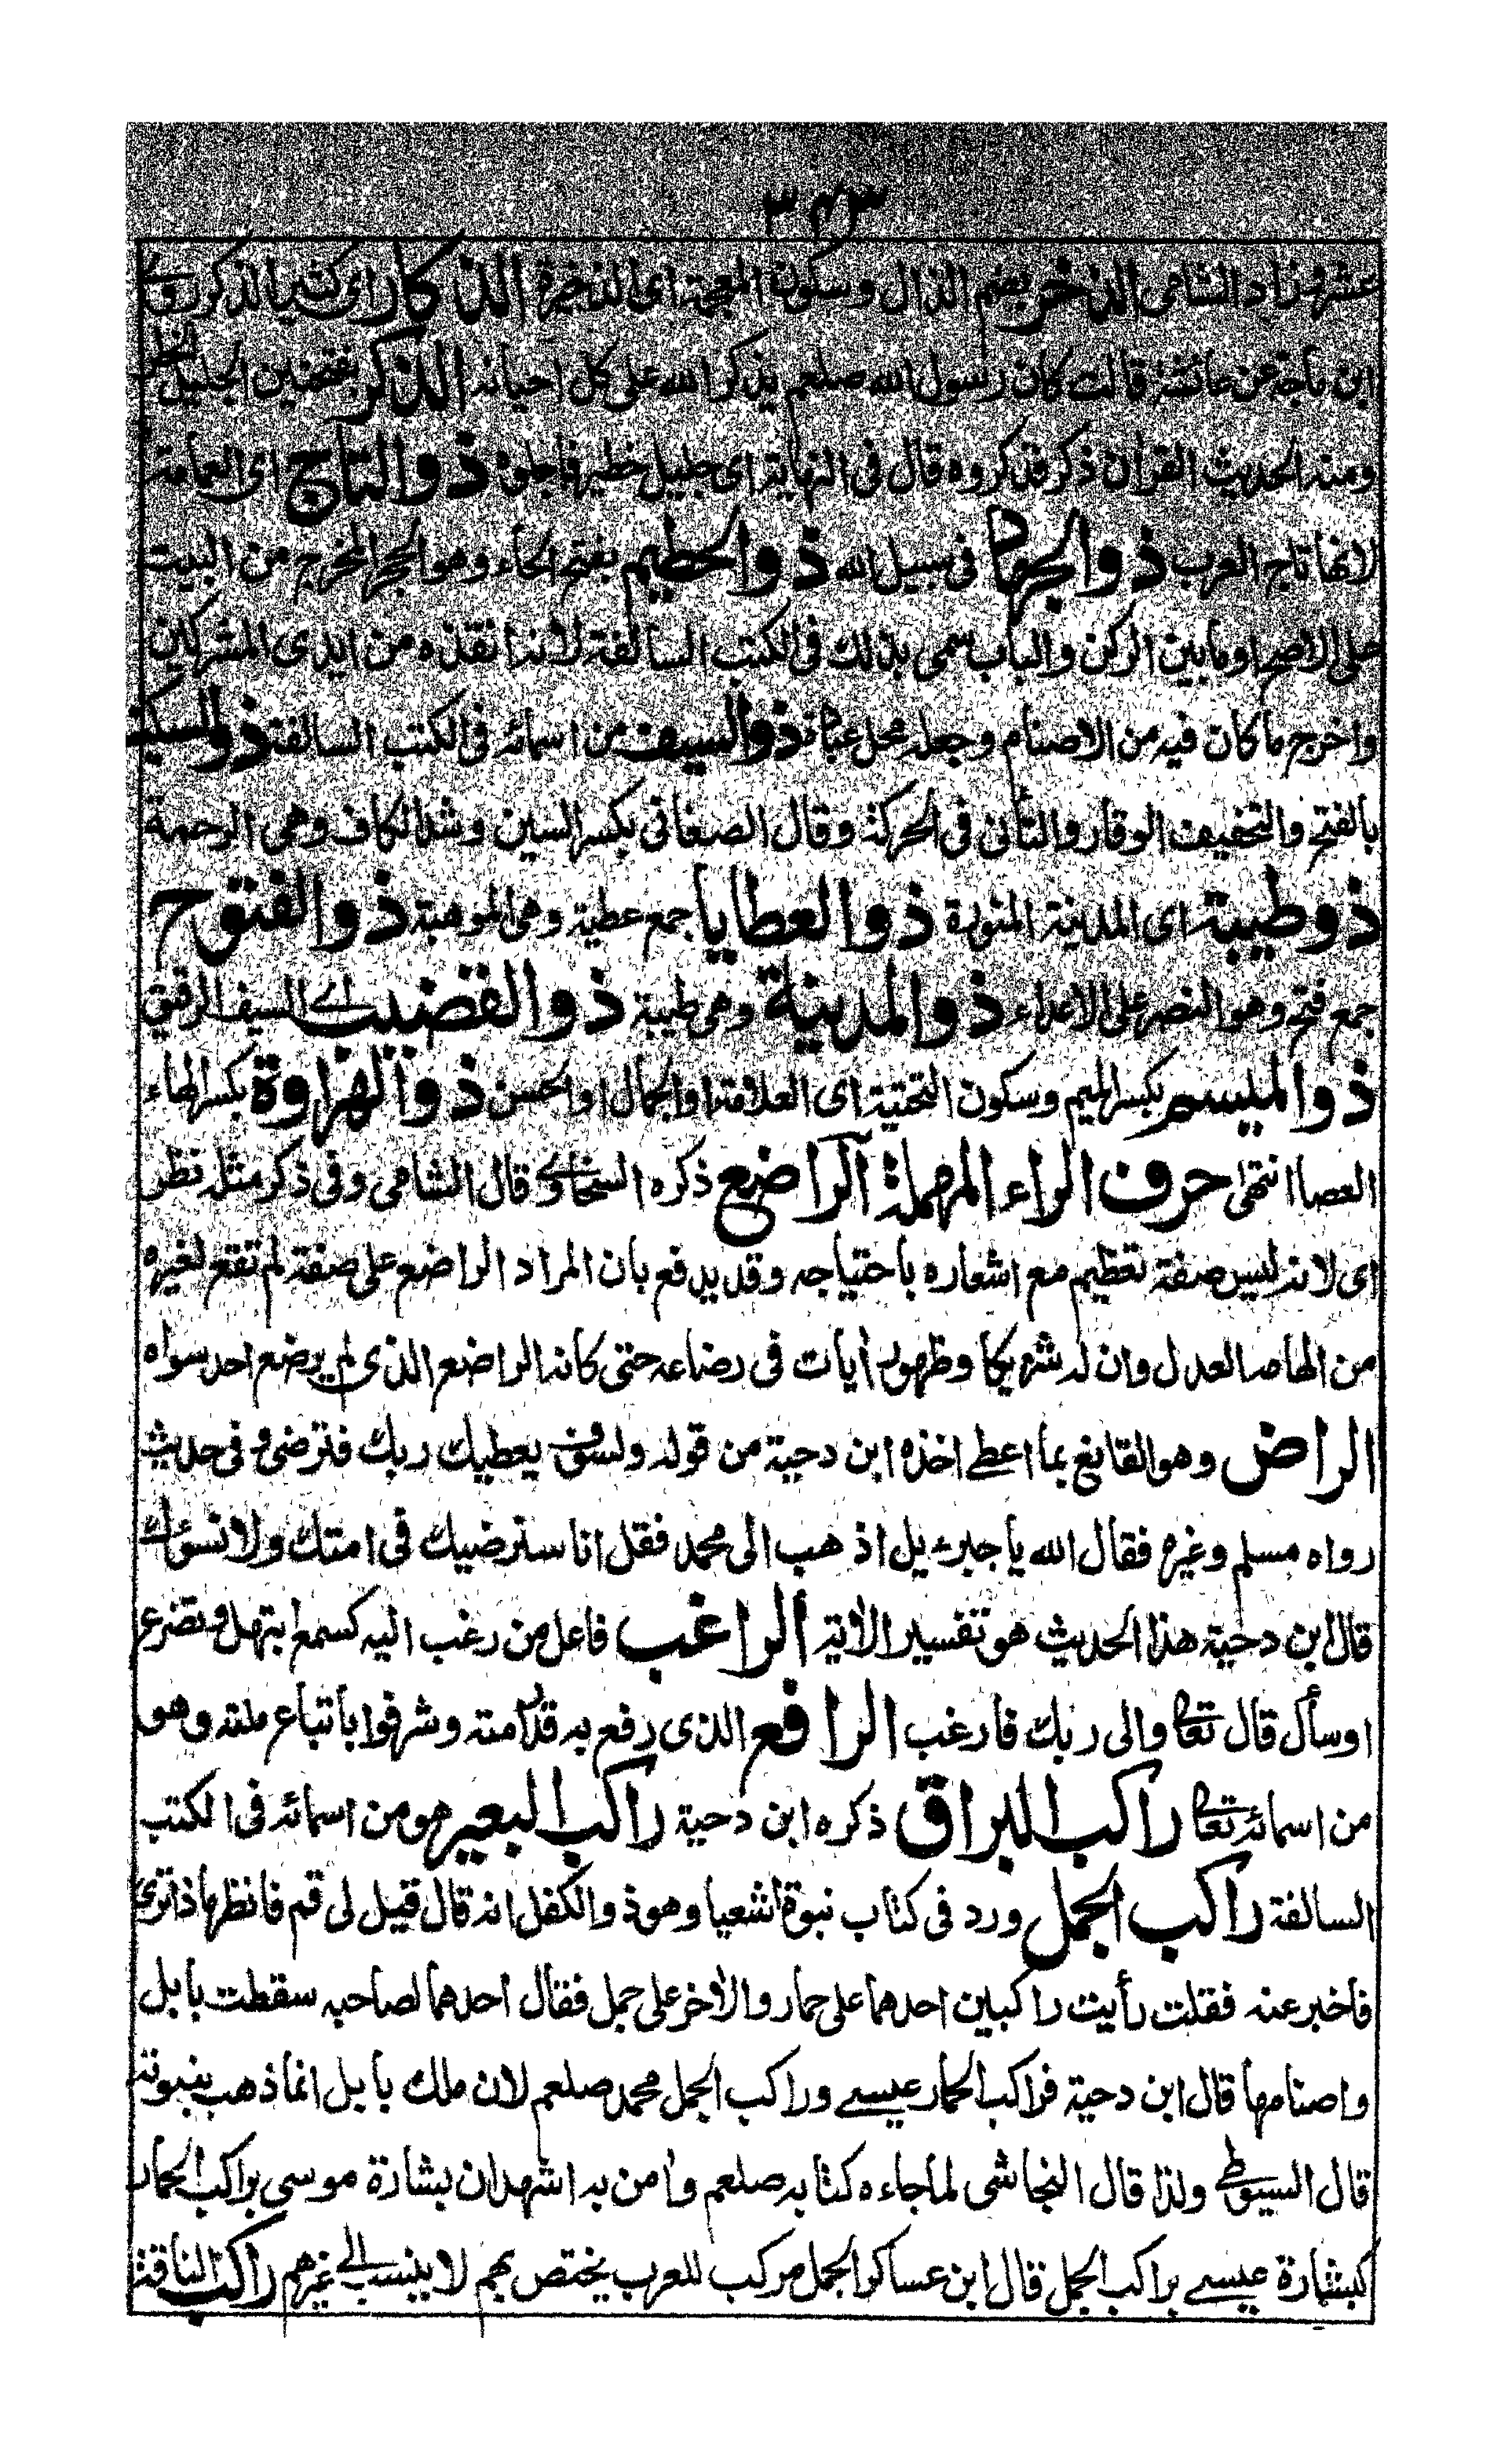 ٣٤٣
عشر وزاد الشامى الذخر بضم الذال وسكون المعجمة اى الذخيرة الذكار اى كثير الذكر روى
ابن ماجه عن عائشة قالت كان رسول الله صلعم يذكر الله على كل احيانه الذكر بفتحتين الجليل الخطير
ومنه الحديث القرآن ذكر فذكروه قال فى النهاية اى جليل خطير فاجلوه ذوالتاج اى العمامة
لانها تاج العرب ذوالجهاد فى سبيل الله ذوالحطيم بفتح الحاء وهو الحجر المخرج من البيت
على الاصح او ما بين الركن والباب سمى بذلك فى الكتب السالفة لانه انقذه من ايدى المشركين
واخرج ما كان فيه من الاصنام وجعله محل عبادة ذوالسيف من اسمائه فى الكتب السالفة ذوالسكينة
بالفتح والتخفيف الوقار والتأنى فى الحركة وقال الصغانى بكسر السين وشد الكاف وهى الرحمة
ذوطيبة اى المدينة المنورة ذوالعطايا جمع عطية وهى الموهبة ذوالفتوح
جمع فتح وهو النصر على الاعداء ذوالمدينة وهى طيبة ذوالقضيب اى السيف الرقيق
ذوالميسم بكسر الميم وسكون التحتية اى العلامة او الجمال او الحسن ذوالهراوة بكسر الهاء
العصا انتهى حرف الراء المهملة الراضع ذكره السخاوى قال الشامى وفى ذكر مثله نظر
اى لانه ليس صفة تعظيم مع اشعاره باحتياجه وقد يدفع بان المراد الراضع على صفة لم تقع لغيره
من الهامه العدل وان له شريكا وظهور أيات فى رضاعه حتى كانه الراضع الذى لم يرضع احد سواه
الراض وهو القانع بما اعطى اخذه ابن دحية من قوله ولسوف يعطيك ربك فترضى وفى حديث
رواه مسلم وغيره فقال الله يا جبرءيل اذهب الى محمد فقل انا سنرضيك فى امتك ولا نسؤك
قال ابن دحية هذا الحديث هو تفسير الاية الراغب فاعل من رغب اليه كسمع ابتهل وتضرع
اوسأل قال تعالى والى ربك فارغب الرافع الذى رفع به قدر امته وشرفوا باتباع ملته وهو
من اسمائه تعالى راكب البراق ذكره ابن دحية راكب البعير هو من اسمائه فى الكتب
السالفة راكب الجمل ورد فى كتاب نبوة اشعيا وهو ذو الكفل انه قال قيل لى قم فانظر ماذا ترى
فاخبر عنه فقلت رأيت راكبين احدهما على حمار والأخر على جمل فقال احدهما لصاحبه سقطت بابل
واصنامها قال ابن دحية فراكب الحمار عيسى وراكب الجمل محمد صلعم لان ملك بابل انما ذهب بنبوته
قال السيوطى ولذا قال النجاشى لما جاءه كتابه صلعم وأمن به اشهد ان بشارة موسى براكب الحمار
كبشارة عيسى براكب الجمل قال ابن عساكر الجمل مركب للعرب يختص بهم لا ينسب الى غيرهم راكب الناقة